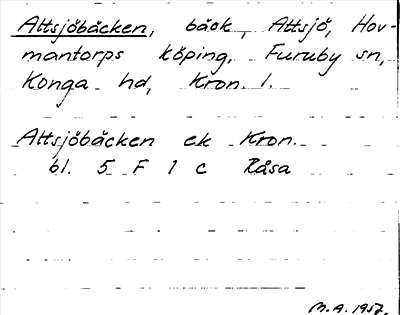 Attsjöbäcken, bäck, Attsjö, Hov-
mantorps köping, Furuby sn,
Konga hd, Kron. l.
Attsjöbäcken ek Kron.
bl. 5 F 1 c Råsa
M.A. 1957.